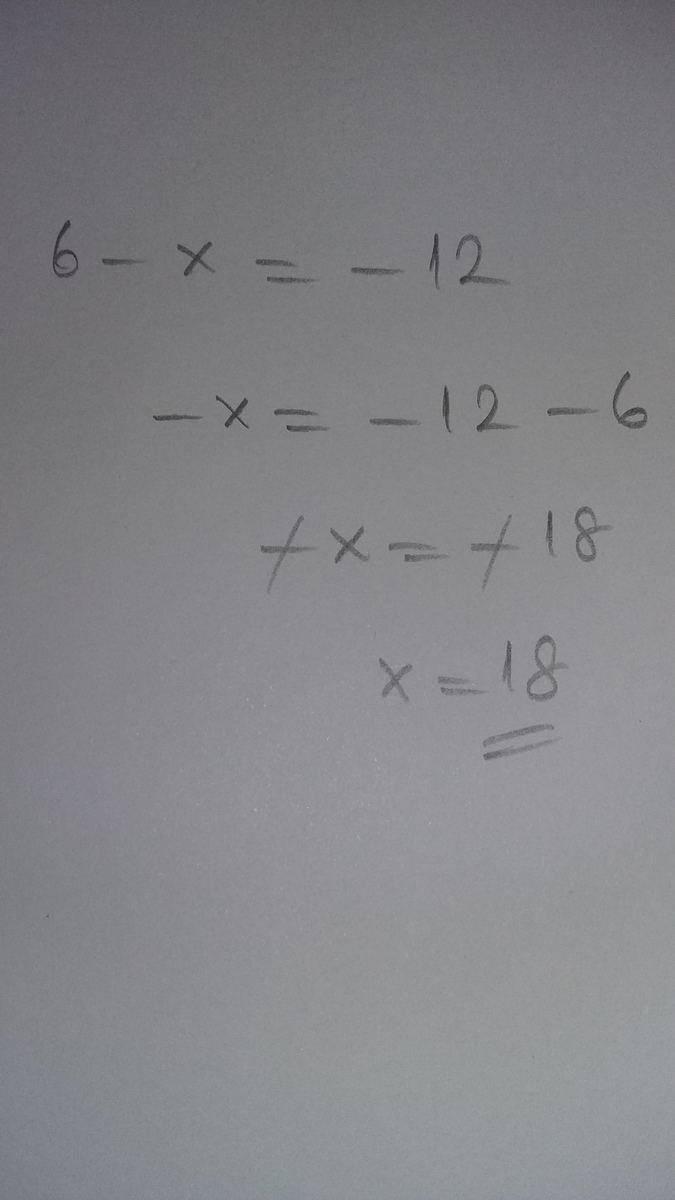 6 - x = - 12
- x = - 12 - 6
+ x = + 18
x = 18